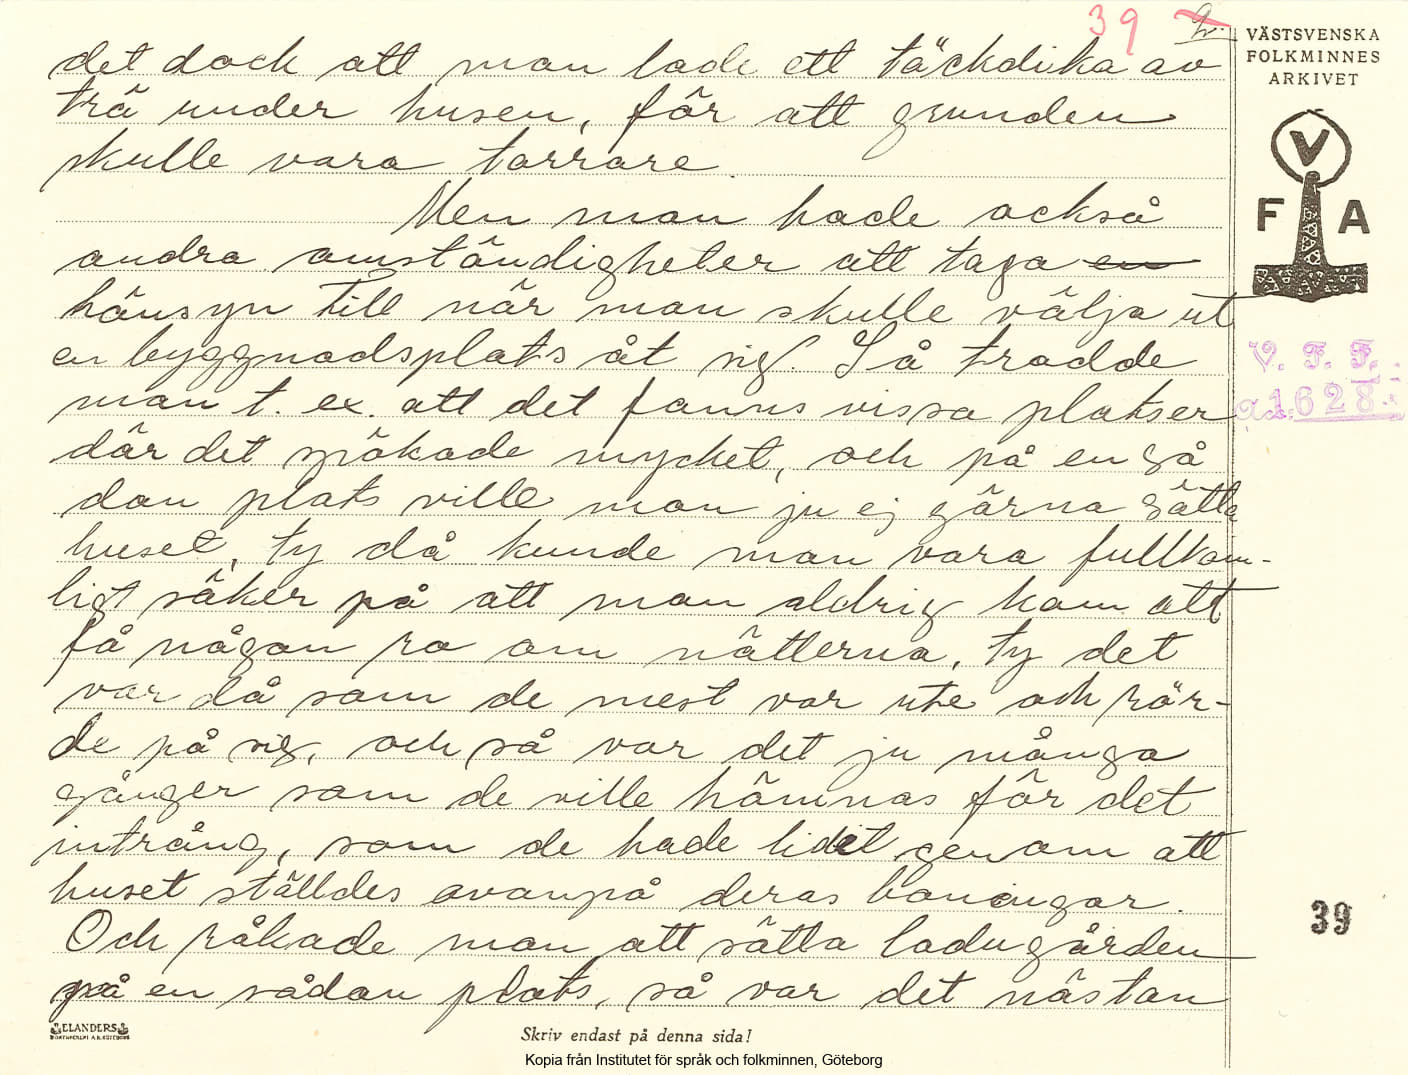 39 2.
VÄSTSVENSKA
FOLKMINNES
ARKIVET
V
F A
V. F. F.
Acc. 1628
det dock att man lade ett täckdika av
trä under husen, för att grunden
skulle vara torrare.
Men man hade också
andra omständigheter att taga en
hänsyn till när man skulle välja ut
en byggnadsplats åt sig. Så trodde
man t. ex. att det fanns vissa platser
där det spökade mycket, och på en så
dan plats ville man ju ej gärna sätta
huset, ty då kunde man vara fullkom-
ligt säker på att man aldrig kom att
få någon ro om nätterna, ty det
var då som de mest var ute och rör-
de på sig, och så var det ju många
gånger som de ville hämnas för det
intrång, som de hade lidit genom att
huset ställdes ovanpå deras boningar.
Och råkade man att sätta ladugården
på en sådan plats, så var det nästan
39
ELANDERS
Skriv endast på denna sida!
Kopia från Institutet för språk och folkminnen, Göteborg